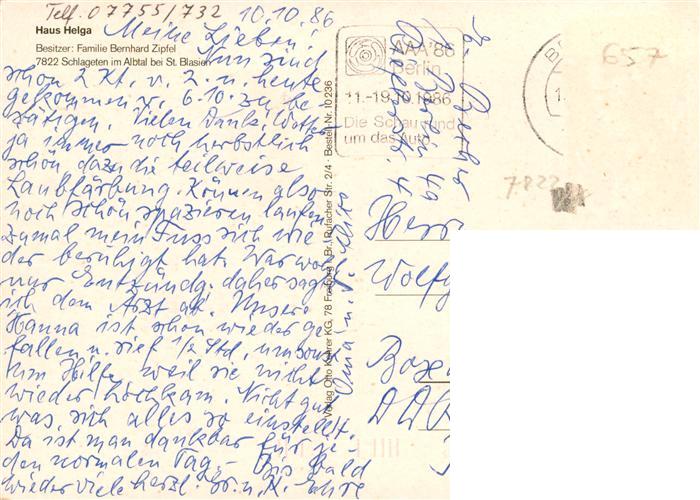 Telf. 07755/732
10.10.86
Haus Helga
Besitzer: Familie Bernhard Zipfel
7822 Schlageten im Albtal bei St. Blasien
Meine Lieben!
Nun sind
schon 2 Kt. v. 2. u. heute
gekommen v. 6.10. zu be-
stätigen. Vielen Dank!
ja immer noch herbstlich
schön, dazu die teilweise
Laubfärbung. Können also
noch schön spazieren laufen
zumal mein Fuss sich wie
der beruhigt hat. War wohl
nur Entzündg. daher sagte
ich dem Arzt ab. Unsere
Hanna ist schon wieder ge
fallen u. rief 1/2 Std. umsonst
um Hilfe, weil sie nicht
wieder hochkam. Nicht gut
was sich alles so einstellt.
Da ist man dankbar für je
den normalen Tag. - Bis bald
wieder viele herzl. Gr. u. K. Eure
Oma u.
Verlag Otto Kehrer KG, 78 Freiburg i. Br., Rufacher Str. 2/4 · Bestell-Nr. 10 236
AAA'86
Berlin
11.-19.10.1986
Die Schau rund
um das Auto
1 Berlin 49
657
7822
Herr
Wolfg
DDR